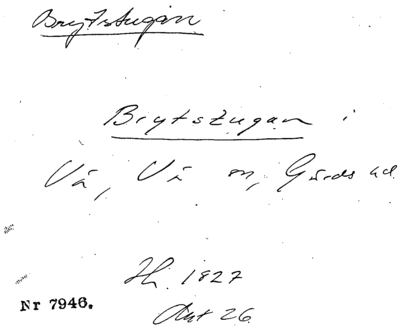 Brytstugan
Brytstugan i
Vä, Vä sn, Gärds hd
Hh. 1827
Akt 26
Nr 7946.